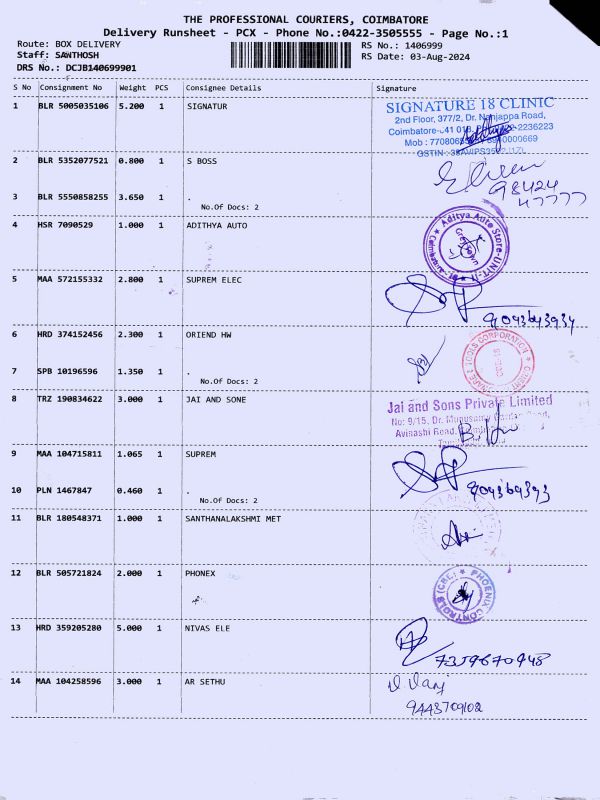 THE PROFESSIONAL COURIERS, COIMBATORE
Delivery Runsheet - PCX - Phone No.:0422-3505555 - Page No.:1
Route: BOX DELIVERY RS No.: 1406999
Staff: SAWTHOSH RS Date: 03-Aug-2024
DRS No.: DCJB140699901
S No Consignment No Weight PCS Consignee Details Signature
1 BLR 5005035106 5.200 1 SIGNATUR
SIGNATURE 18 CLINIC
2nd Floor, 377/2, Dr. Nanjappa Road,
Coimbatore-
Mob :
GSTIN :
2 BLR 5352077521 0.800 1 S BOSS
98424
47777
3 BLR 5550858255 3.650 1 .
No.Of Docs: 2
4 HSR 7090529 1.000 1 ADITHYA AUTO
Aditya Auto Store-UNIT-II
5 MAA 572155332 2.800 1 SUPREM ELEC
6 HRD 374152456 2.300 1 ORIEND HW
& TOOLS CORPORATION
7 SPB 10196596 1.350 1 .
No.Of Docs: 2
8 TRZ 190834622 3.000 1 JAI AND SONE
Jai and Sons Private Limited
No: 9/15, Dr.
Avinashi Road,
9 MAA 104715811 1.065 1 SUPREM
10 PLN 1467847 0.460 1 .
No.Of Docs: 2
11 BLR 180548371 1.000 1 SANTHANALAKSHMI MET
12 BLR 505721824 2.000 1 PHONEX
PHOENIX CONTROLS (CBE)
13 HRD 359205280 5.000 1 NIVAS ELE
7359670948
14 MAA 104258596 3.000 1 AR SETHU
9443709102